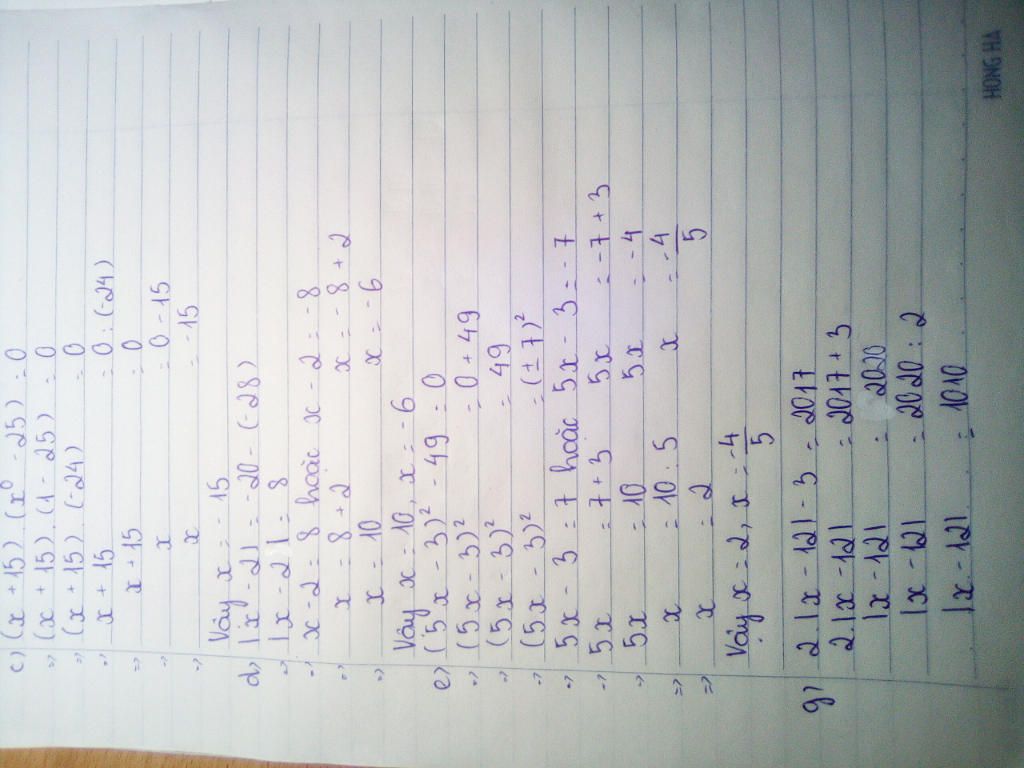 c) (x + 15) . (x⁰ - 25) = 0
=> (x + 15) . (1 - 25) = 0
=> (x + 15) . (-24) = 0
=> x + 15 = 0 : (-24)
=> x + 15 = 0
=> x = 0 - 15
=> x = -15
Vậy x = -15
d) |x - 2| = -20 - (-28)
=> |x - 2| = 8
=> x - 2 = 8 hoặc x - 2 = -8
=> x = 8 + 2 x = -8 + 2
=> x = 10 x = -6
Vậy x = 10, x = -6
e) (5x - 3)² - 49 = 0
=> (5x - 3)² = 0 + 49
=> (5x - 3)² = 49
=> (5x - 3)² = (±7)²
=> 5x - 3 = 7 hoặc 5x - 3 = -7
=> 5x = 7 + 3 5x = -7 + 3
=> 5x = 10 5x = -4
=> x = 10 : 5 x = -4/5
=> x = 2
Vậy x = 2, x = -4/5
g) 2.|x - 12| - 3 = 2017
2.|x - 12| = 2017 + 3
|x - 12| = 2020
|x - 12| = 2020 : 2
|x - 12| = 1010
HONG HA